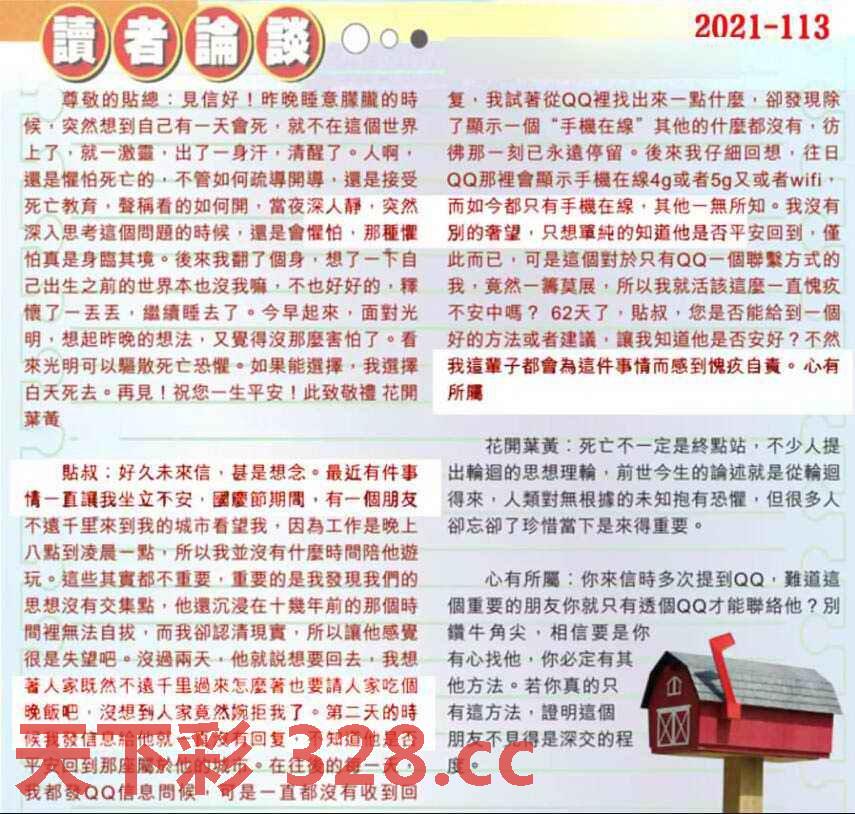 讀者論談
2021-113
尊敬的貼總：見信好！昨晚睡意朦朧的時
候，突然想到自己有一天會死，就不在這個世界
上了，就一激靈，出了一身汗，清醒了。人啊，
還是懼怕死亡的，不管如何疏導開導，還是接受
死亡教育，聲稱看的如何開，當夜深人靜，突然
深入思考這個問題的時候，還是會懼怕，那種懼
怕真是身臨其境。後來我翻了個身，想了一下自
己出生之前的世界本也沒我嘛，不也好好的，釋
懷了一丟丟，繼續睡去了。今早起來，面對光
明，想起昨晚的想法，又覺得沒那麼害怕了。看
來光明可以驅散死亡恐懼。如果能選擇，我選擇
白天死去。再見！祝您一生平安！此致敬禮 花開
葉黃
貼叔：好久未來信，甚是想念。最近有件事
情一直讓我坐立不安，國慶節期間，有一個朋友
不遠千里來到我的城市看望我，因為工作是晚上
八點到凌晨一點，所以我並沒有什麼時間陪他遊
玩。這些其實都不重要，重要的是我發現我們的
思想沒有交集點，他還沉浸在十幾年前的那個時
間裡無法自拔，而我卻認清現實，所以讓他感覺
很是失望吧。沒過兩天，他就説想要回去，我想
著人家既然不遠千里過來怎麼著也要請人家吃個
晚飯吧，沒想到人家竟然婉拒我了。第二天的時
候我發信息給他就一直沒有回复，不知道他是否
平安回到那座屬於他的城市。在往後的每一天，
我都發QQ信息問候，可是一直都沒有收到回
复，我試著從QQ裡找出來一點什麼，卻發現除
了顯示一個“手機在線”其他的什麼都沒有，彷
彿那一刻已永遠停留。後來我仔細回想，往日
QQ那裡會顯示手機在線4g或者5g又或者wifi，
而如今都只有手機在線，其他一無所知。我沒有
別的奢望，只想單純的知道他是否平安回到，僅
此而已，可是這個對於只有QQ一個聯繫方式的
我，竟然一籌莫展，所以我就活該這麼一直愧疚
不安中嗎？ 62天了，貼叔，您是否能給到一個
好的方法或者建議，讓我知道他是否安好？不然
我這輩子都會為這件事情而感到愧疚自責。 心有
所屬
花開葉黃：死亡不一定是終點站，不少人提
出輪迴的思想理輪，前世今生的論述就是從輪迴
得來，人類對無根據的未知抱有恐懼，但很多人
卻忘卻了珍惜當下是來得重要。
心有所屬：你來信時多次提到QQ，難道這
個重要的朋友你就只有透個QQ才能聯絡他？別
鑽牛角尖，相信要是你
有心找他，你必定有其
他方法。若你真的只
有這方法，證明這個
朋友不見得是深交的程
度。
天下彩 328.cc